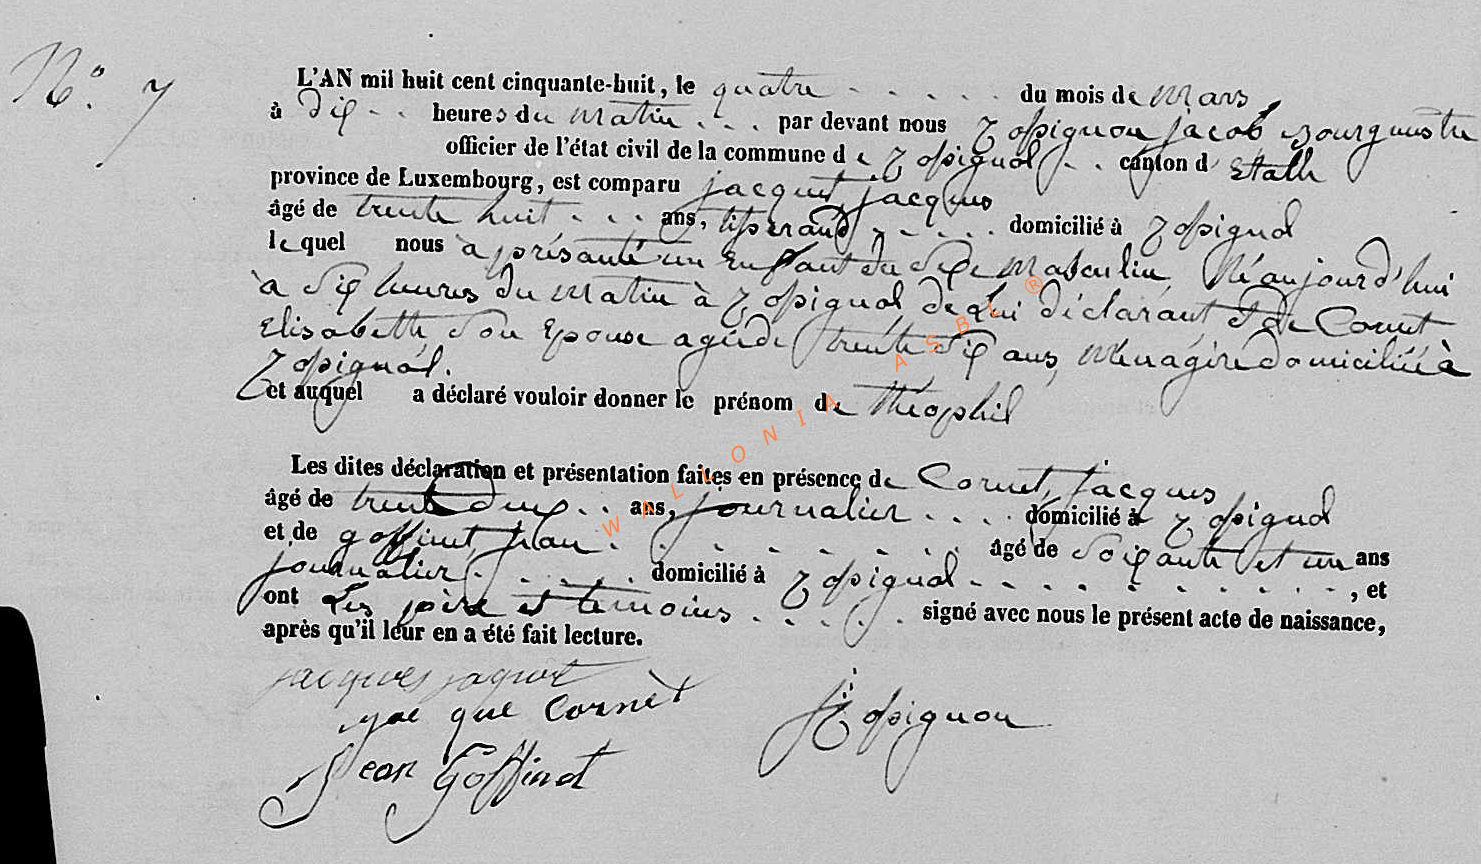 N° 7
L'AN mil huit cent cinquante-huit, le quatre du mois de Mars
à dix heures du matin par devant nous Rossignon jacob Bourgmestre
officier de l'état civil de la commune de Rossignol canton d'Etalle
province de Luxembourg, est comparu jacquet, jacques
âgé de trente huit ans, tisserand domicilié à Rossignol
lequel nous a présanté un Enfant du Sexe Masculin, Né aujourd'hui
à Six heures du matin à Rossignol de Lui déclarant et de Cornet
Elisabeth, Son Epouse agée de trente Six ans, Ménagère domiciliée à
Rossignol.
et auquel a déclaré vouloir donner le prénom de Théophil
Les dites déclaration et présentation faites en présence de Cornet, jacques
âgé de trente deux ans, journalier domicilié à Rossignol
et de goffinet, jean âgé de Soixante et un ans
journalier domicilié à Rossignol, et
ont Les père et temoins signé avec nous le présent acte de naissance,
après qu'il leur en a été fait lecture.
jacques jaquet
jac que Cornèt
J: Rossignon
Jean Goffinet
WALLONIA ASBL ®